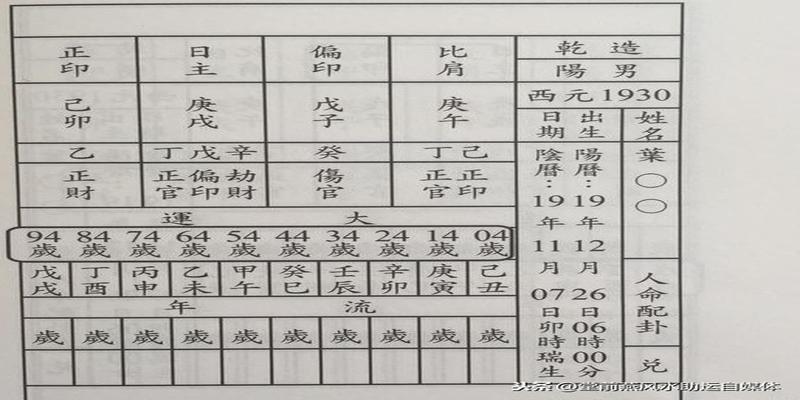 乾造
陽男
西元1930
姓名
葉○○
人命配卦
兌
出生日期
陽曆：19年12月26日06時00分
陰曆：19年11月07日卯時瑞生
比肩 偏印 日主 正印
庚午 戊子 庚戌 己卯
己丁 癸 辛戊丁 乙
正印 正官 傷官 劫財 偏印 正官 正財
大運
04歲 14歲 24歲 34歲 44歲 54歲 64歲 74歲 84歲 94歲
己丑 庚寅 辛卯 壬辰 癸巳 甲午 乙未 丙申 丁酉 戊戌
流年
歲 歲 歲 歲 歲 歲 歲 歲 歲 歲
头条 @堂前燕风水助运自媒体